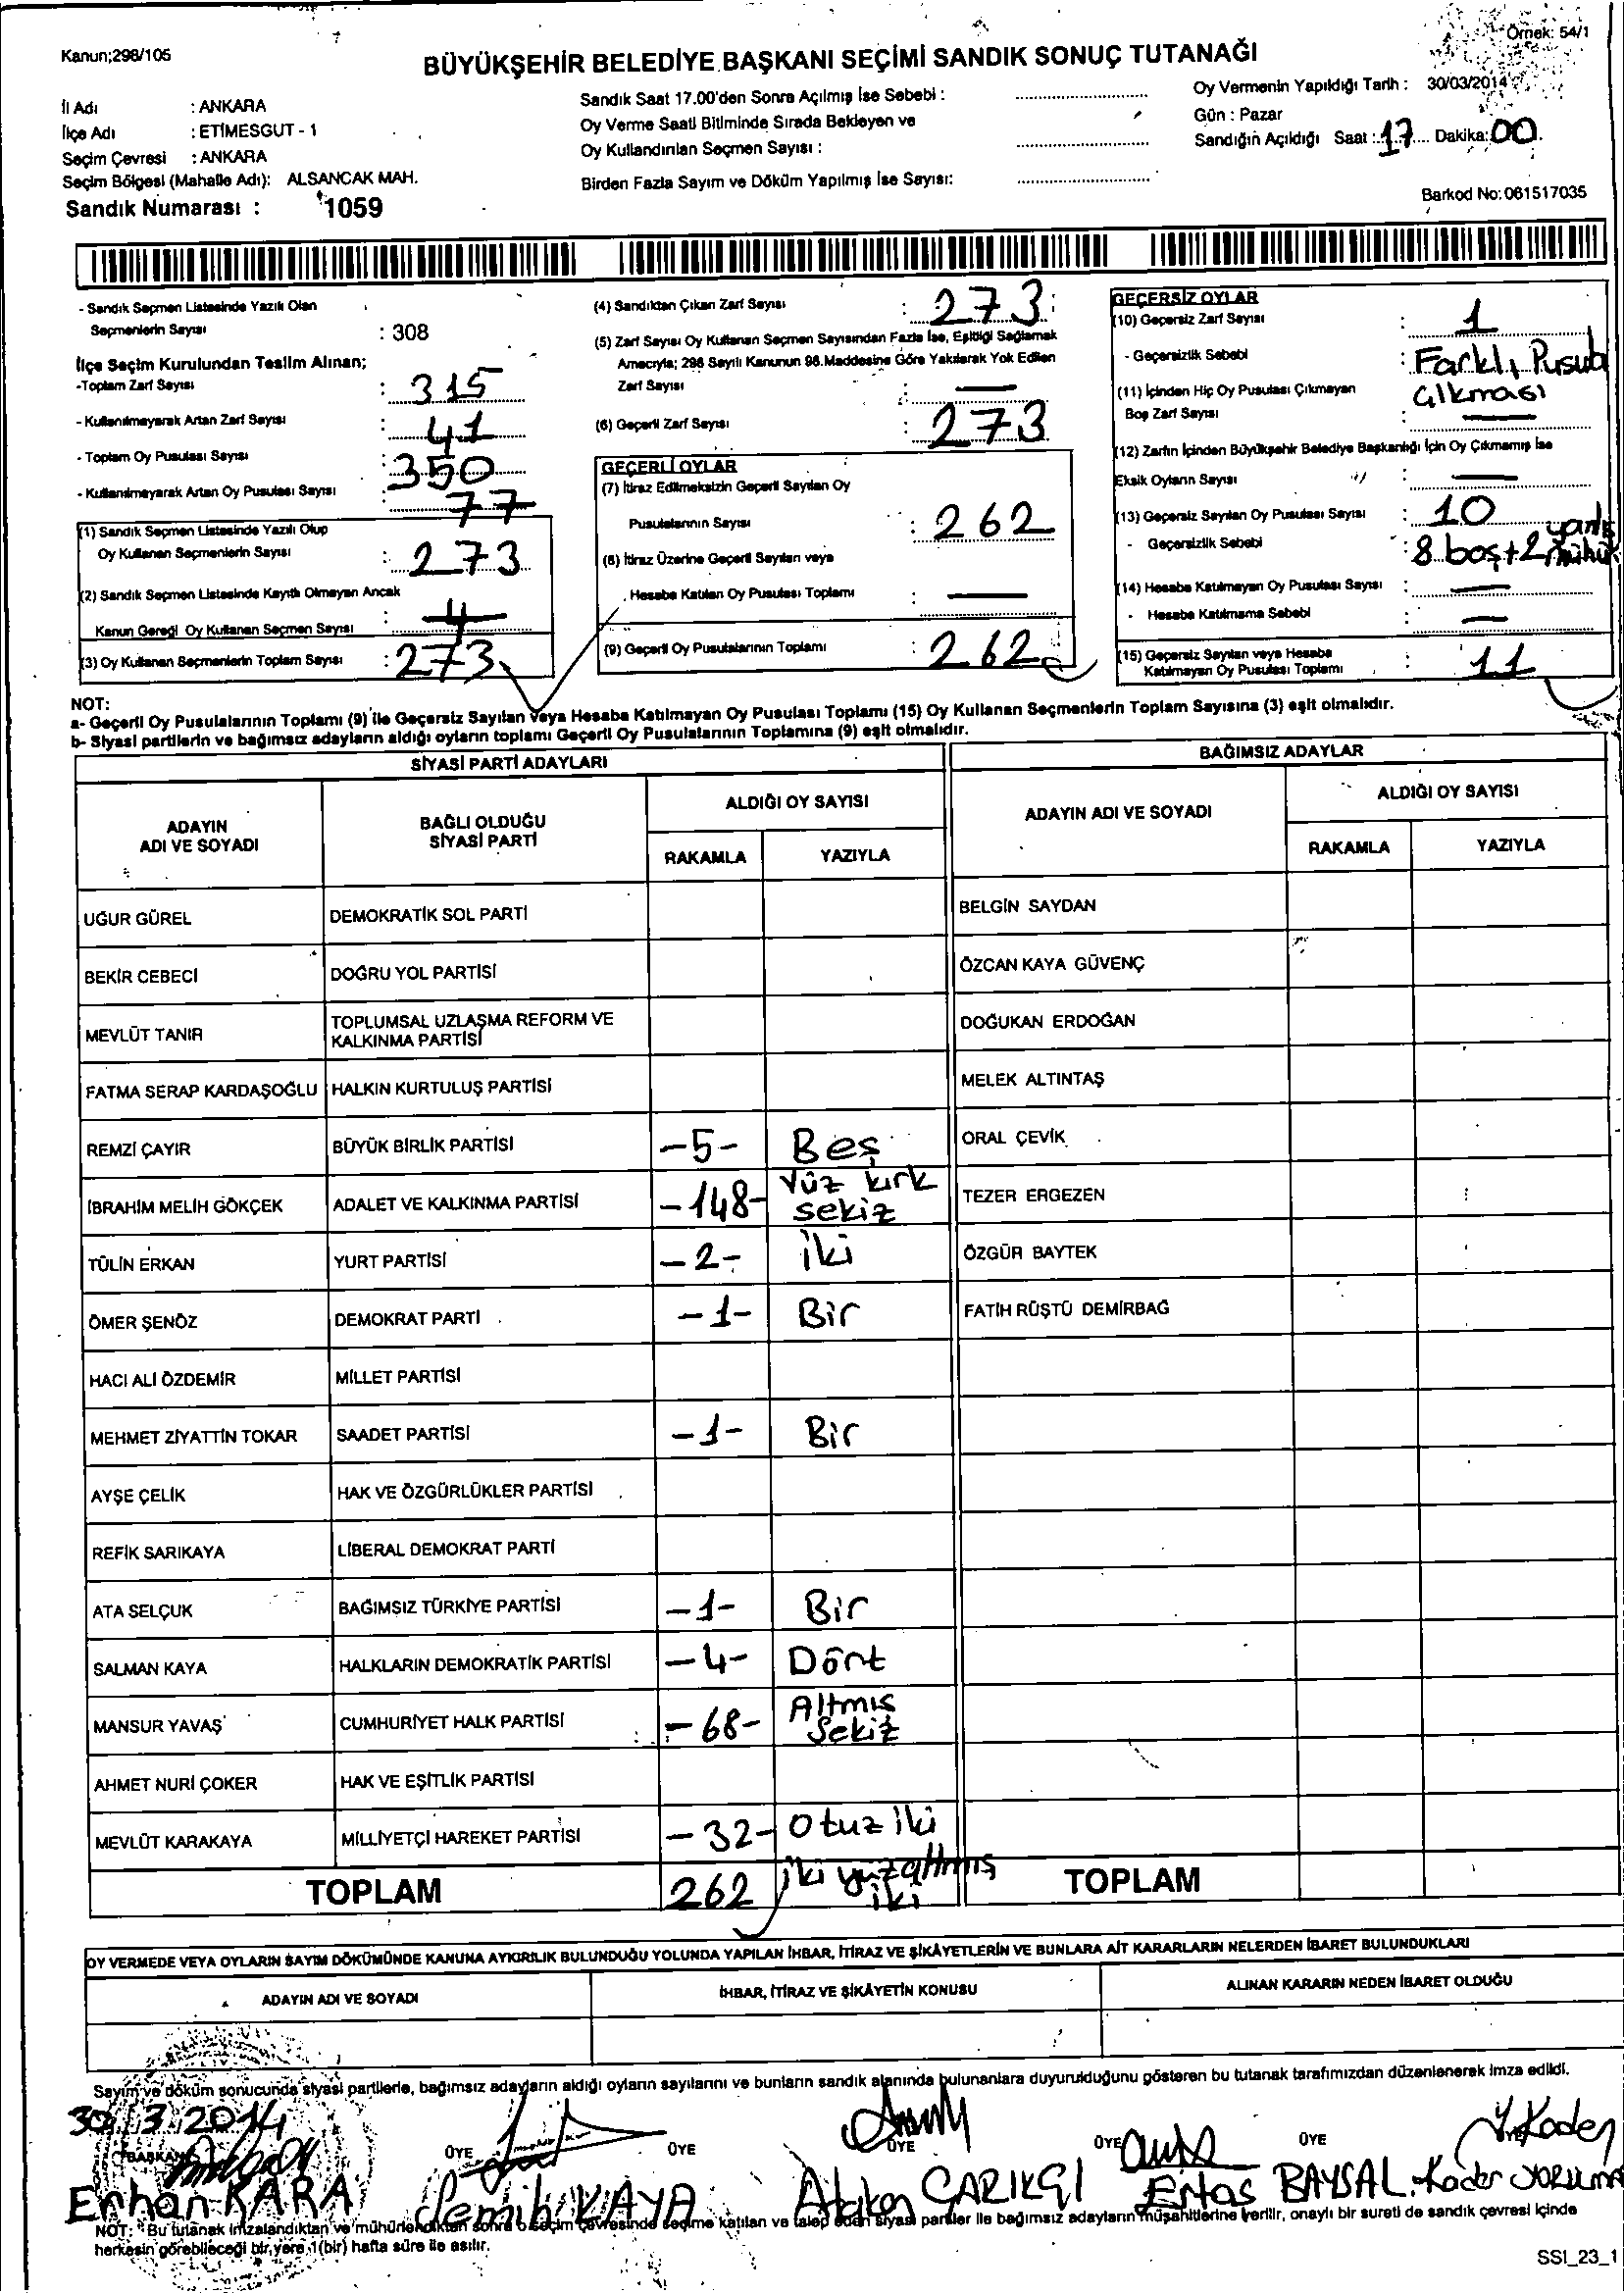 Örnek: 54/1
Kanun;298/105
BÜYÜKŞEHİR BELEDİYE BAŞKANI SEÇİMİ SANDIK SONUÇ TUTANAĞI
İl Adı : ANKARA
İlçe Adı : ETİMESGUT - 1
Seçim Çevresi : ANKARA
Seçim Bölgesi (Mahalle Adı): ALSANCAK MAH.
Sandık Numarası : 1059
Sandık Saat 17.00'den Sonra Açılmış İse Sebebi :
Oy Verme Saati Bitiminde Sırada Bekleyen ve
Oy Kullandırılan Seçmen Sayısı :
Birden Fazla Sayım ve Döküm Yapılmış İse Sayısı:
Oy Vermenin Yapıldığı Tarih : 30/03/2014
Gün : Pazar
Sandığın Açıldığı Saat : 17 Dakika: 00
Barkod No: 061517035
- Sandık Seçmen Listesinde Yazılı Olan
Seçmenlerin Sayısı : 308
İlçe Seçim Kurulundan Teslim Alınan;
-Toplam Zarf Sayısı : 315
- Kullanılmayarak Artan Zarf Sayısı : 41
- Toplam Oy Pusulası Sayısı : 350
- Kullanılmayarak Artan Oy Pusulası Sayısı : 77
(1) Sandık Seçmen Listesinde Yazılı Olup
Oy Kullanan Seçmenlerin Sayısı : 273
(2) Sandık Seçmen Listesinde Kayıtlı Olmayan Ancak
Kanun Gereği Oy Kullanan Seçmen Sayısı :
(3) Oy Kullanan Seçmenlerin Toplam Sayısı : 273
(4) Sandıktan Çıkan Zarf Sayısı : 273
(5) Zarf Sayısı Oy Kullanan Seçmen Sayısından Fazla İse, Eşitliği Sağlamak
Amacıyla; 298 Sayılı Kanunun 98.Maddesine Göre Yakılarak Yok Edilen
Zarf Sayısı : —
(6) Geçerli Zarf Sayısı : 273
GEÇERLİ OYLAR
(7) İtiraz Edilmeksizin Geçerli Sayılan Oy
Pusulalarının Sayısı : 262
(8) İtiraz Üzerine Geçerli Sayılan veya
Hesaba Katılan Oy Pusulası Toplamı : —
(9) Geçerli Oy Pusulalarının Toplamı : 262
GEÇERSİZ OYLAR
(10) Geçersiz Zarf Sayısı : 1
- Geçersizlik Sebebi : Farklı Pusula
çıkması
(11) İçinden Hiç Oy Pusulası Çıkmayan
Boş Zarf Sayısı : —
(12) Zarfın İçinden Büyükşehir Belediye Başkanlığı İçin Oy Çıkmamış İse
Eksik Oyların Sayısı : —
(13) Geçersiz Sayılan Oy Pusulası Sayısı : 10
- Geçersizlik Sebebi : 8 boş+2 yanlış mühür
(14) Hesaba Katılmayan Oy Pusulası Sayısı : —
- Hesaba Katılmama Sebebi : —
(15) Geçersiz Sayılan veya Hesaba
Katılmayan Oy Pusulası Toplamı : 11
NOT:
a- Geçerli Oy Pusulalarının Toplamı (9) ile Geçersiz Sayılan Veya Hesaba Katılmayan Oy Pusulası Toplamı (15) Oy Kullanan Seçmenlerin Toplam Sayısına (3) eşit olmalıdır.
b- Siyasi partilerin ve bağımsız adayların aldığı oyların toplamı Geçerli Oy Pusulalarının Toplamına (9) eşit olmalıdır.
SİYASİ PARTİ ADAYLARI
BAĞIMSIZ ADAYLAR
ADAYIN ADI VE SOYADI
BAĞLI OLDUĞU SİYASİ PARTİ
ALDIĞI OY SAYISI
RAKAMLA YAZIYLA
ADAYIN ADI VE SOYADI
ALDIĞI OY SAYISI
RAKAMLA YAZIYLA
UĞUR GÜREL DEMOKRATİK SOL PARTİ BELGİN SAYDAN
BEKİR CEBECİ DOĞRU YOL PARTİSİ ÖZCAN KAYA GÜVENÇ
MEVLÜT TANIR TOPLUMSAL UZLAŞMA REFORM VE KALKINMA PARTİSİ DOĞUKAN ERDOĞAN
FATMA SERAP KARDAŞOĞLU HALKIN KURTULUŞ PARTİSİ MELEK ALTINTAŞ
REMZİ ÇAYIR BÜYÜK BİRLİK PARTİSİ -5- Beş ORAL ÇEVİK
İBRAHİM MELİH GÖKÇEK ADALET VE KALKINMA PARTİSİ -148- Yüz kırk sekiz TEZER ERGEZEN
TÜLİN ERKAN YURT PARTİSİ -2- iki ÖZGÜR BAYTEK
ÖMER ŞENÖZ DEMOKRAT PARTİ -1- Bir FATİH RÜŞTÜ DEMİRBAĞ
HACI ALİ ÖZDEMİR MİLLET PARTİSİ
MEHMET ZİYATTİN TOKAR SAADET PARTİSİ -1- Bir
AYŞE ÇELİK HAK VE ÖZGÜRLÜKLER PARTİSİ
REFİK SARIKAYA LİBERAL DEMOKRAT PARTİ
ATA SELÇUK BAĞIMSIZ TÜRKİYE PARTİSİ -1- Bir
SALMAN KAYA HALKLARIN DEMOKRATİK PARTİSİ -4- Dört
MANSUR YAVAŞ CUMHURİYET HALK PARTİSİ -68- Altmış Sekiz
AHMET NURİ ÇOKER HAK VE EŞİTLİK PARTİSİ
MEVLÜT KARAKAYA MİLLİYETÇİ HAREKET PARTİSİ -32- Otuz iki
TOPLAM 262 iki yüz altmış iki TOPLAM
OY VERMEDE VEYA OYLARIN SAYIM DÖKÜMÜNDE KANUNA AYKIRILIK BULUNDUĞU YOLUNDA YAPILAN İHBAR, İTİRAZ VE ŞİKÂYETLERİN VE BUNLARA AİT KARARLARIN NELERDEN İBARET BULUNDUKLARI
ADAYIN ADI VE SOYADI İHBAR, İTİRAZ VE ŞİKÂYETİN KONUSU ALINAN KARARIN NEDEN İBARET OLDUĞU
Sayım ve döküm sonucunda siyasi partilerle, bağımsız adayların aldığı oyların sayılarını ve bunların sandık alanında bulunanlara duyurulduğunu gösteren bu tutanak tarafımızdan düzenlenerek imza edildi.
30/3/2014
BAŞKAN ÜYE ÜYE ÜYE ÜYE ÜYE
Erhan KARA Semih KAYA Atakan ÇARIKÇI Ertaş BAYSAL Kader
NOT: Bu tutanak imzalandıktan ve mühürlendikten sonra o seçim çevresinde seçime katılan ve talep eden siyasi partiler ile bağımsız adayların müşahitlerine verilir, onaylı bir sureti de sandık çevresi içinde
herkesin görebileceği bir yere 1(bir) hafta süre ile asılır.
SSI_23_1